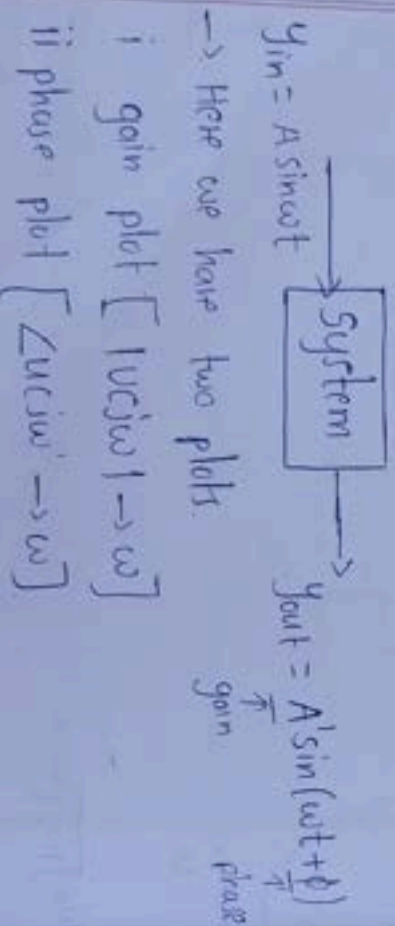 yin = A sinωt → System → yout = A' sin(ωt+ϕ)
gain phase
→ Here we have two plots.
i gain plot [ |U(jω| → ω]
ii phase plot [ ∠U(jω → ω]